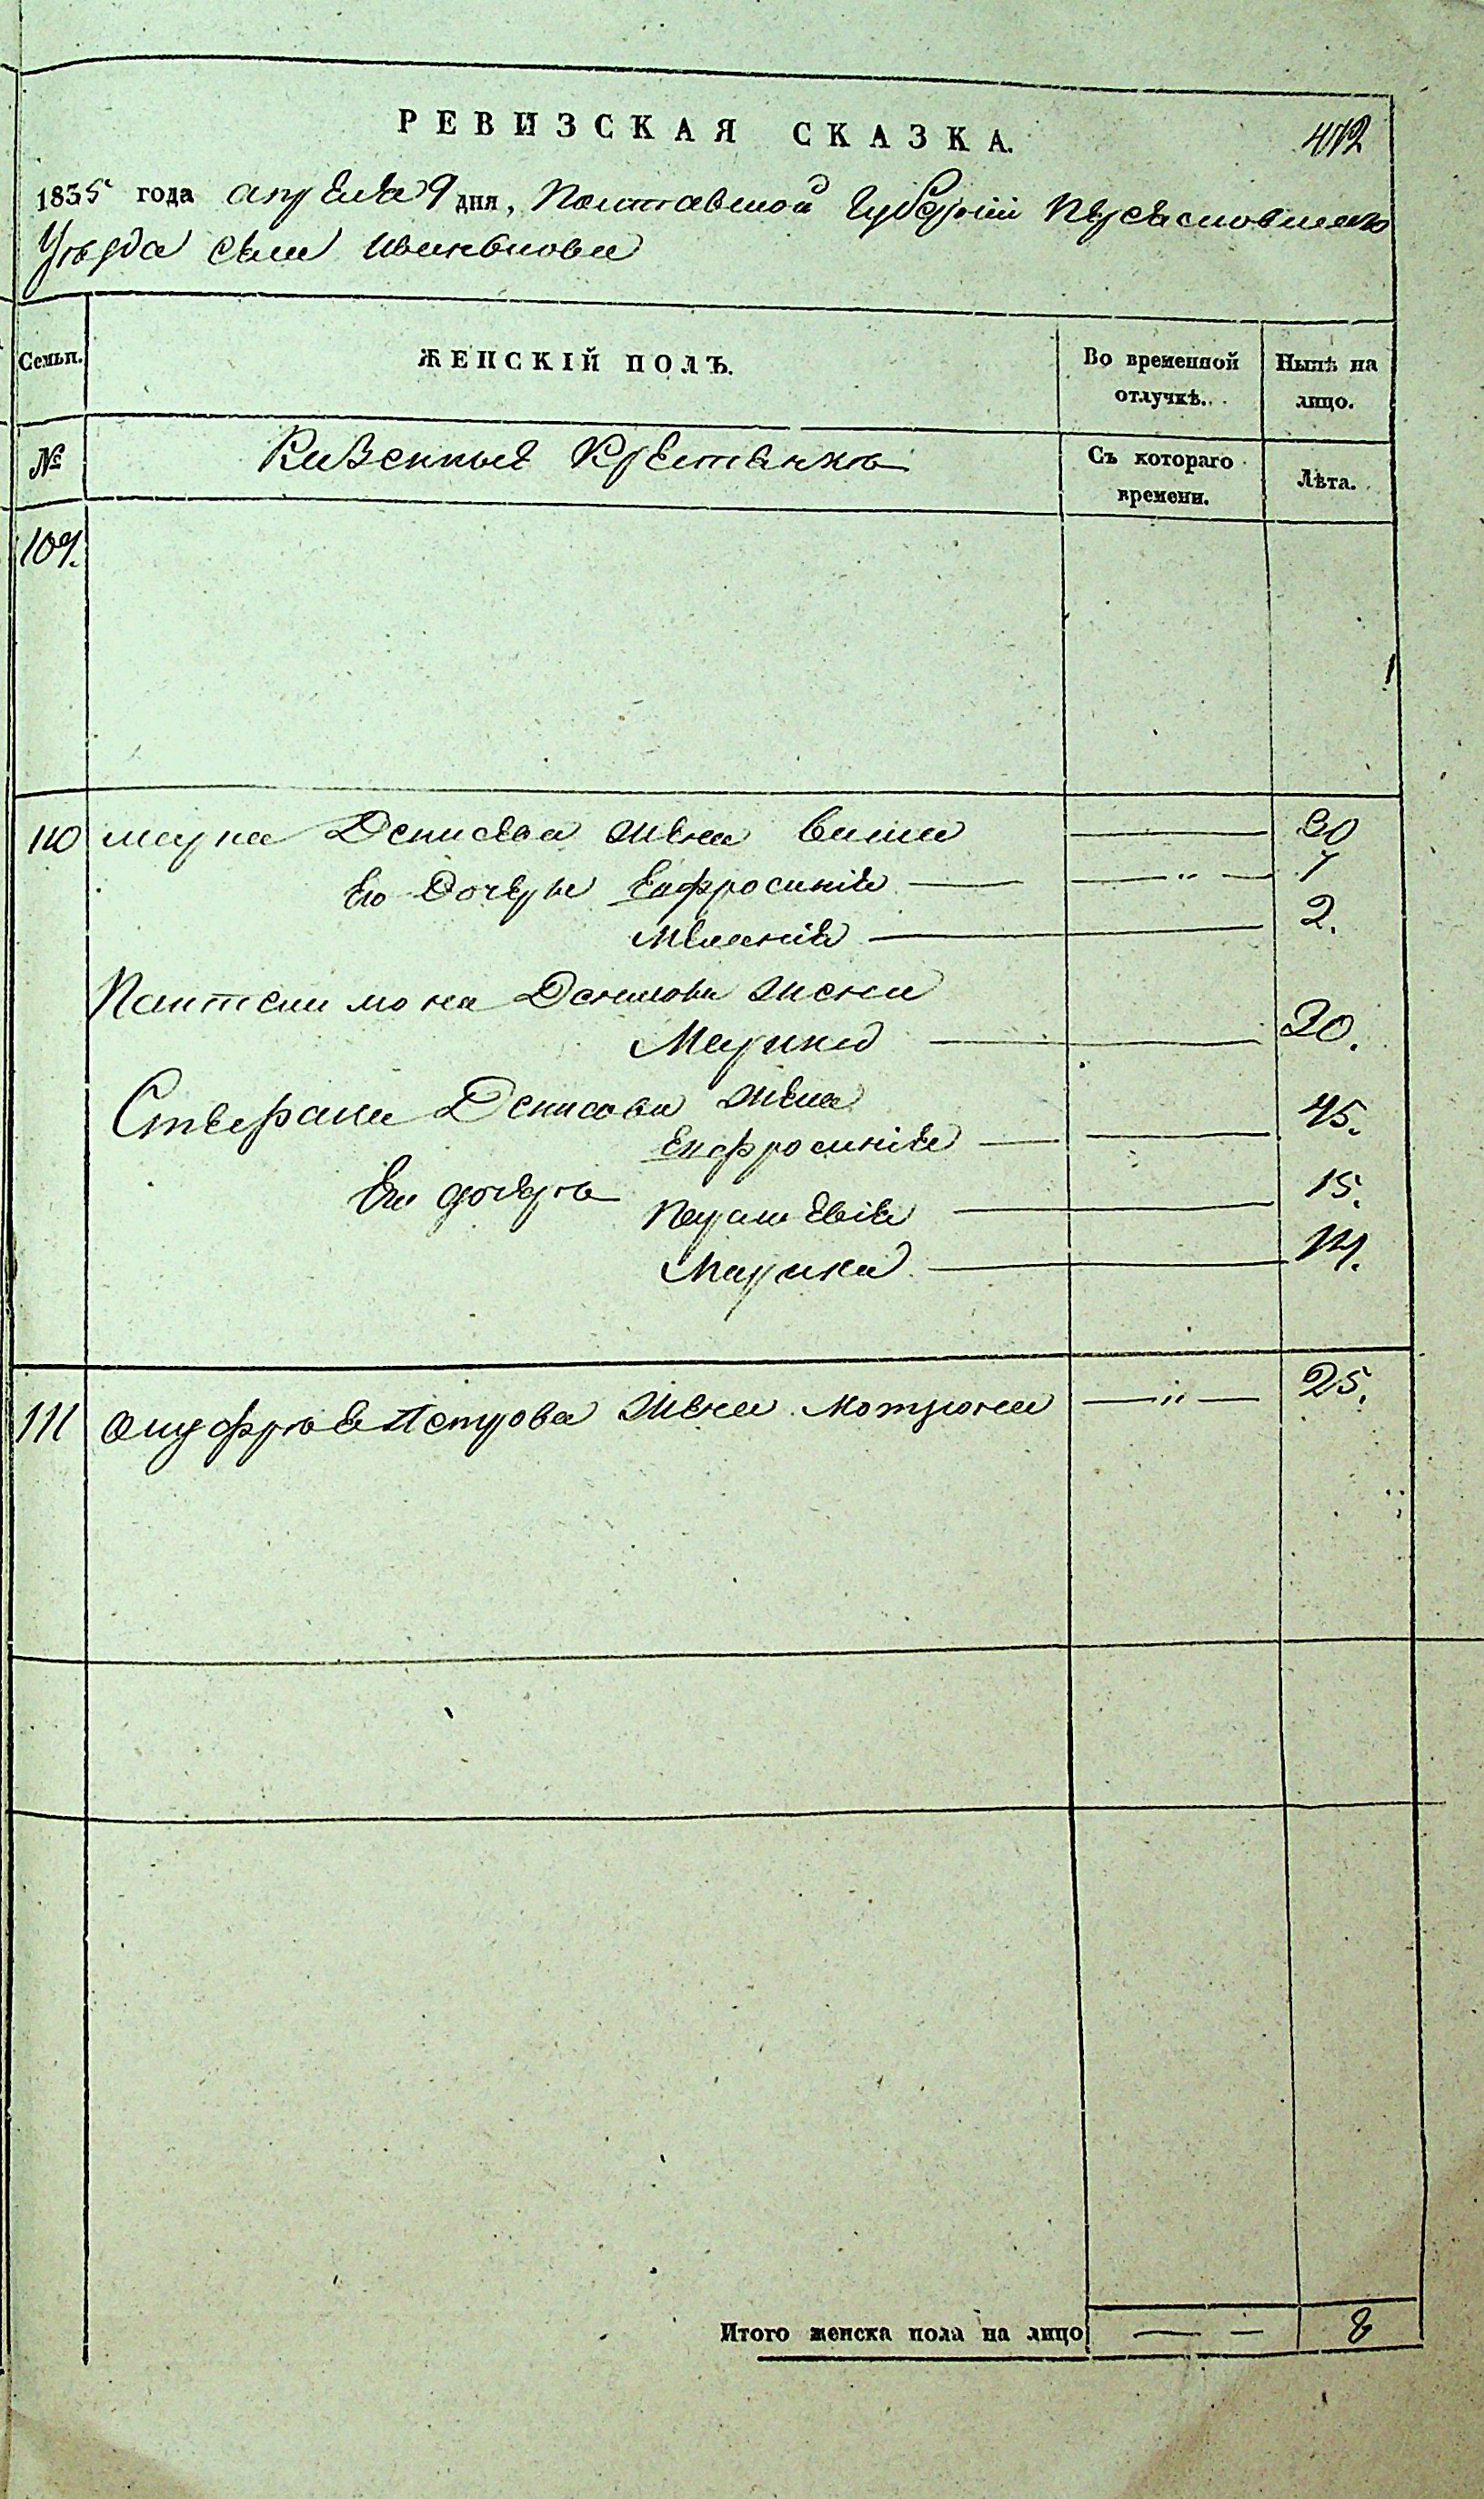 РЕВИЗСКАЯ СКАЗКА.
412
1835 года апреля 9 дня, Полтавской Губернии Переясловскаго
Уезда села
Семьи.
ЖЕНСКІЙ ПОЛЪ.
Во временной отлучкѣ.
Нынѣ на лицо.
№
Казенныя Крестьянки
Съ котораго времени.
Лѣта.
109.
110 Марка Денисова жена 30
Его Дочери Евфросинія 7
Меланія 2.
Пантелимона Денисова жена
Марина 20.
Стефана Денисова жена
Евфросинія 45.
Его дочери Параскевія 15.
Марина 14.
111 Онуфрія Петрова жена Мотрона 25.
Итого женска пола на лицо 8